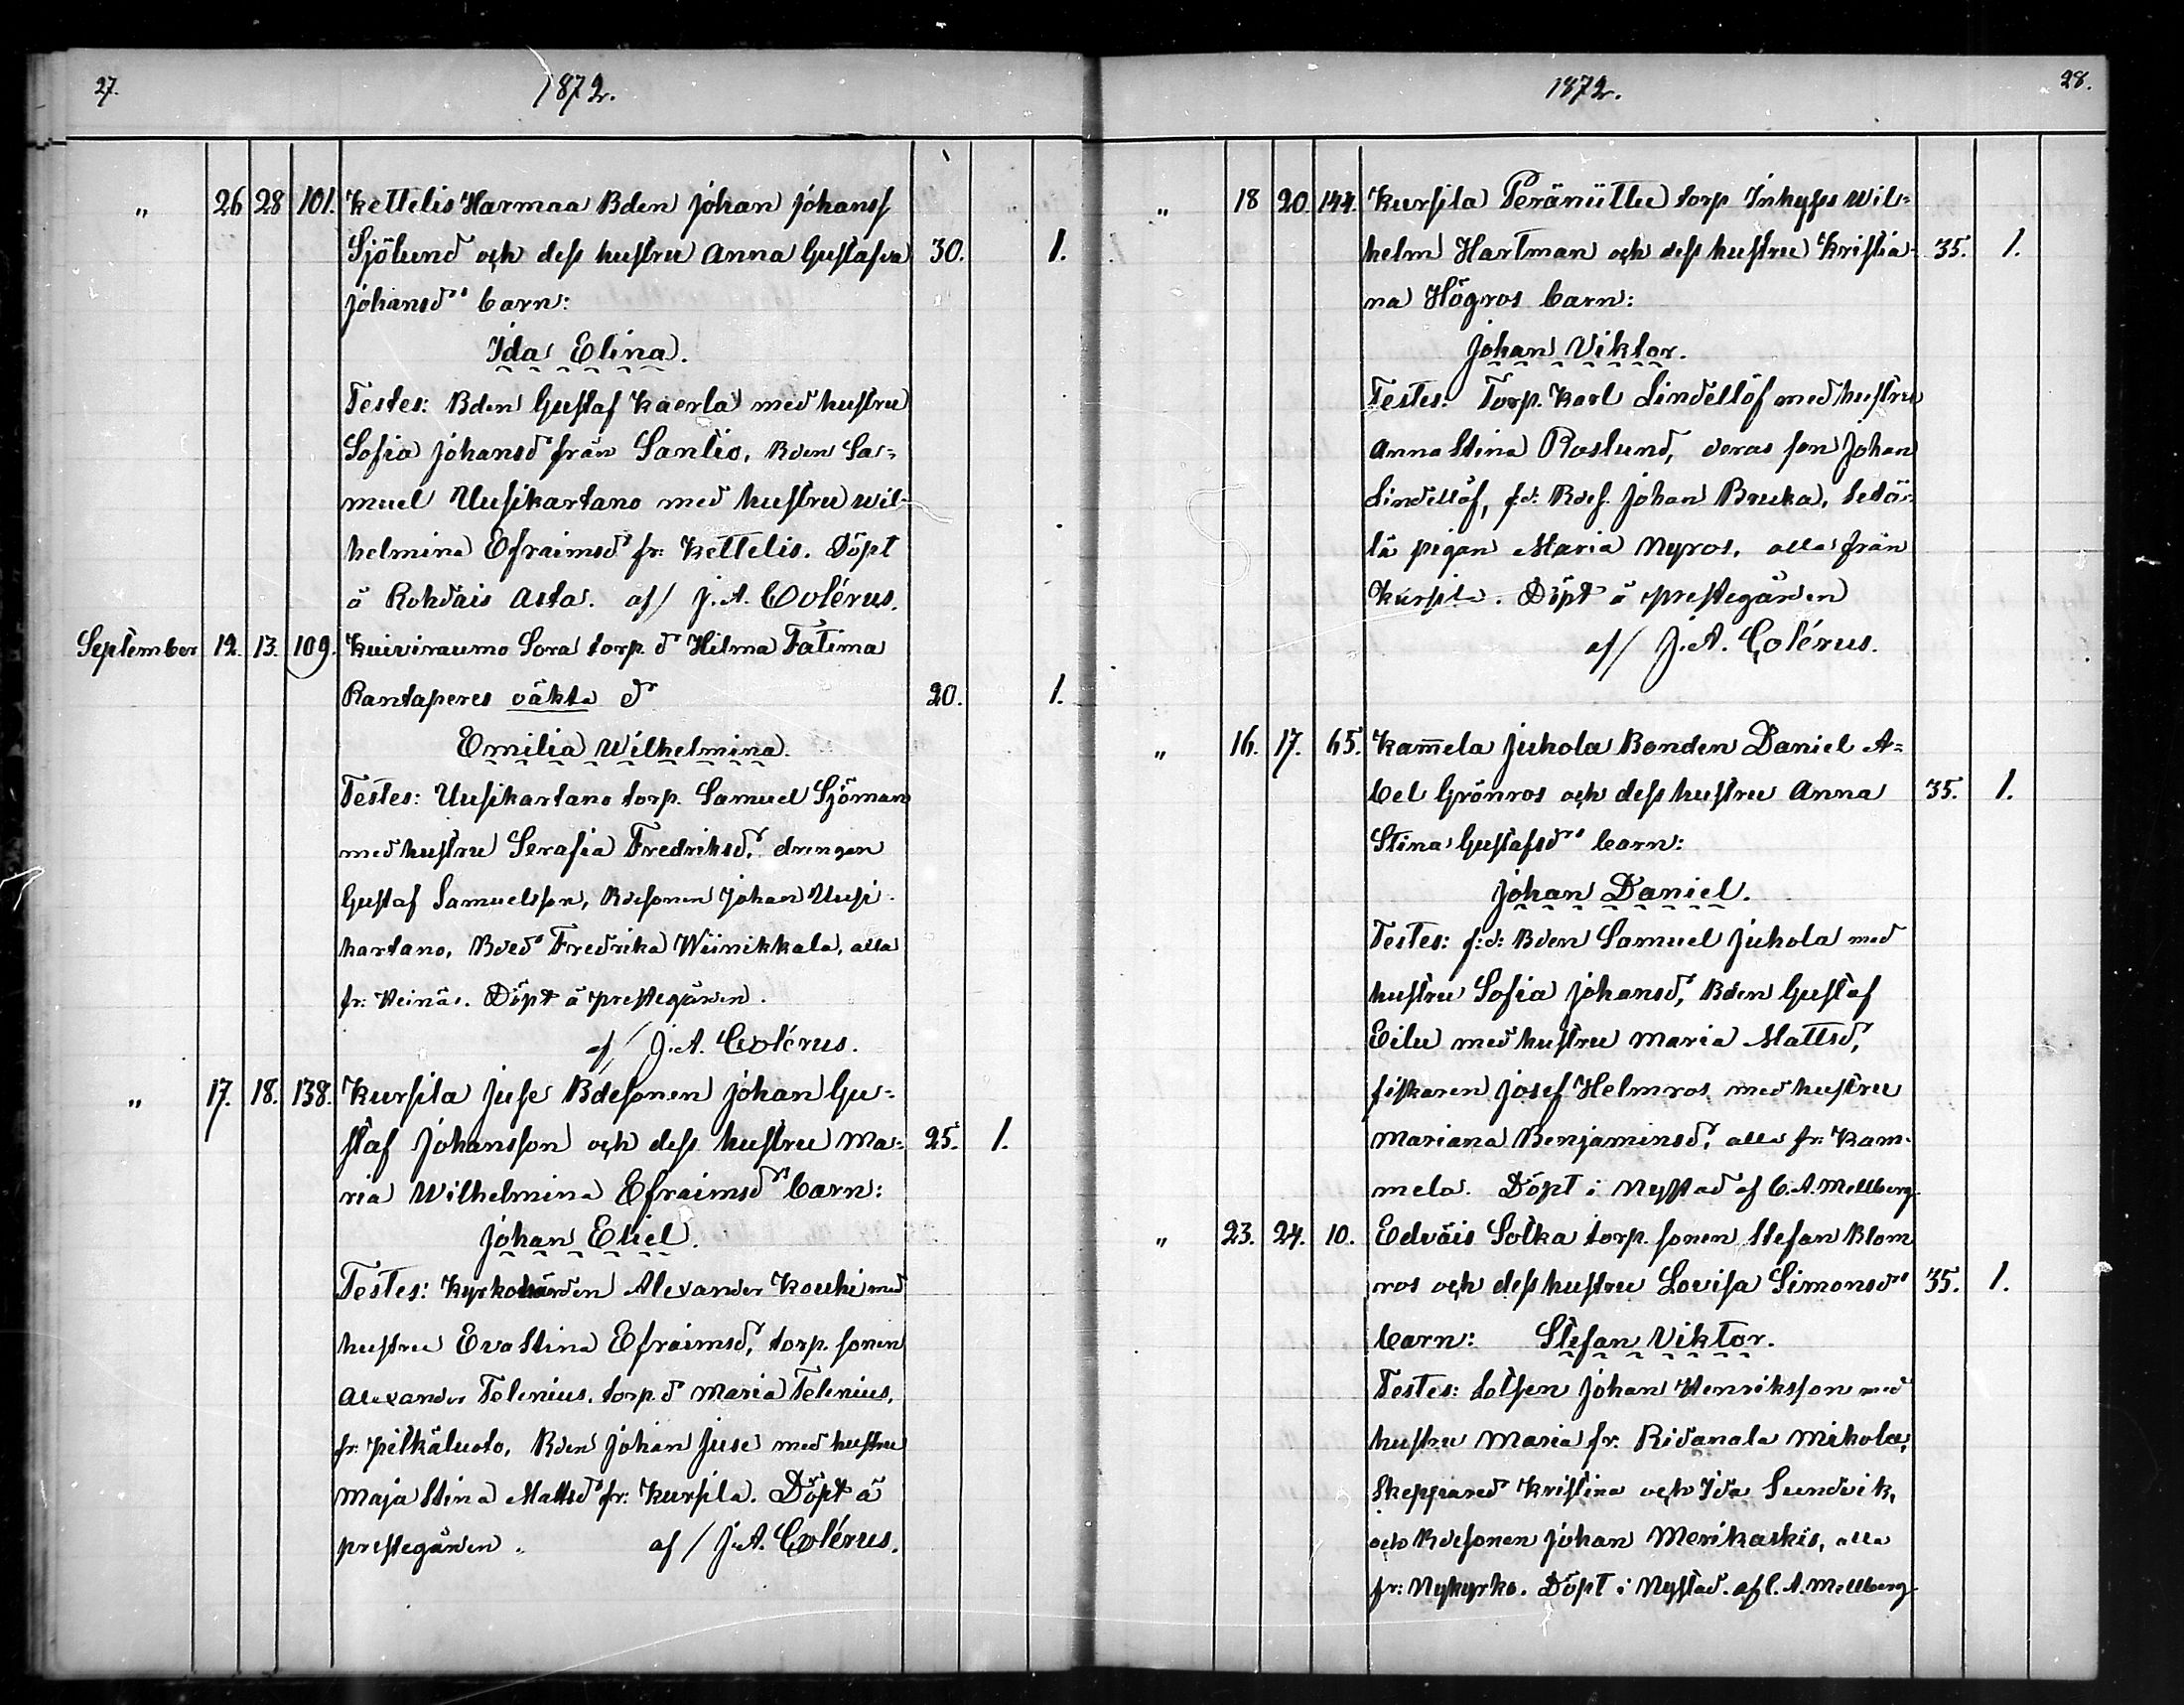 27.
1872.
„ 26 28 101. Kettelis Harmaa Bden Johan Johanss
Sjölund och dess hustru Anna Gustafva 30. 1.
Johansdr barn:
Ida Elina.
Testes: Bden Gustaf Kaerla med hustru
Sofia Johansdr från Santio, Bden Sa-
muel Uusikartano med hustru Wil-
helmina Efraimsdr fr: Kettelis. Döpt
å Rohdais af J. A. Colérus.
September 12. 13. 109. Kuiviraumo Sora torp. dr Hilma Fatima
Rantaperes oäkta dr 20. 1.
Emilia Wilhelmina.
Testes: Uusikartano torp. Samuel Sjöman
med hustru Serafia Fredriksdr, drengen
Gustaf Samuelsson, Bdesonen Johan Uusi-
kartano, Bdedr Fredrika Wiinikkala, alla
fr: Heinäs. Döpt å prestegården.
af J. A. Colérus.
„ 17. 18. 138. Kursila Juse Bdesonen Johan Gu-
staf Johansson och dess hustru Ma- 25. 1.
ria Wilhelmina Efraimsdr barn:
Johan Eliel.
Testes: Kyrkovärden Alexander Kouhi med
hustru Eva Stina Efraimsdr, torp. sonen
Alexander Telenius, torp. dr Maria Telenius,
fr: Pitkäluoto, Bden Johan Juse med hustru
Maja Stina Mattsdr fr: Kursila. Döpt å
prestegården. af J. A. Colérus.
1872.
28.
„ 18 20. 144. Kursila Peräniittu torp Inhyses Wil-
helm Hartman och dess hustru Kristia- 35. 1.
na Högros barn:
Johan Viktor.
Testes: Torp. Karl Lindellöf med hustru
Anna Stina Roslund, deras son Johan
Lindellöf, f.d. Bdes. Johan Bruka,
pigan Maria Nyros, alla från
Kursila. Döpt å prestegården
af J. A. Colérus.
„ 16. 17. 65. Kam̅ela Juhola Bonden Daniel A-
bel Grönros och dess hustru Anna 35. 1.
Stina Gustafsdr barn:
Johan Daniel.
Testes: f:d: Bden Samuel Juhola med
hustru Sofia Johansdr, Bden Gustaf
Eilu med hustru Maria Mattsdr,
fiskaren Josef Helmros med hustru
Mariana Benjaminsdr, alla fr: Kam-
mela. Döpt i Nystad af C. A. Mellberg.
„ 23. 24. 10. Edväis Solka torp. sonen Stefan Blom
ros och dess hustru Lovisa Simonsdr 35. 1.
barn: Stefan Viktor.
Testes: lotsen Johan Henriksson med
hustru Maria fr: Ridanala Mikola,
Skepparedr Kristina och Ida Sundvik,
och Bdesonen Johan Merikaskis, alla
fr: Nykyrko. Döpt i Nystad. af C. A. Mellberg